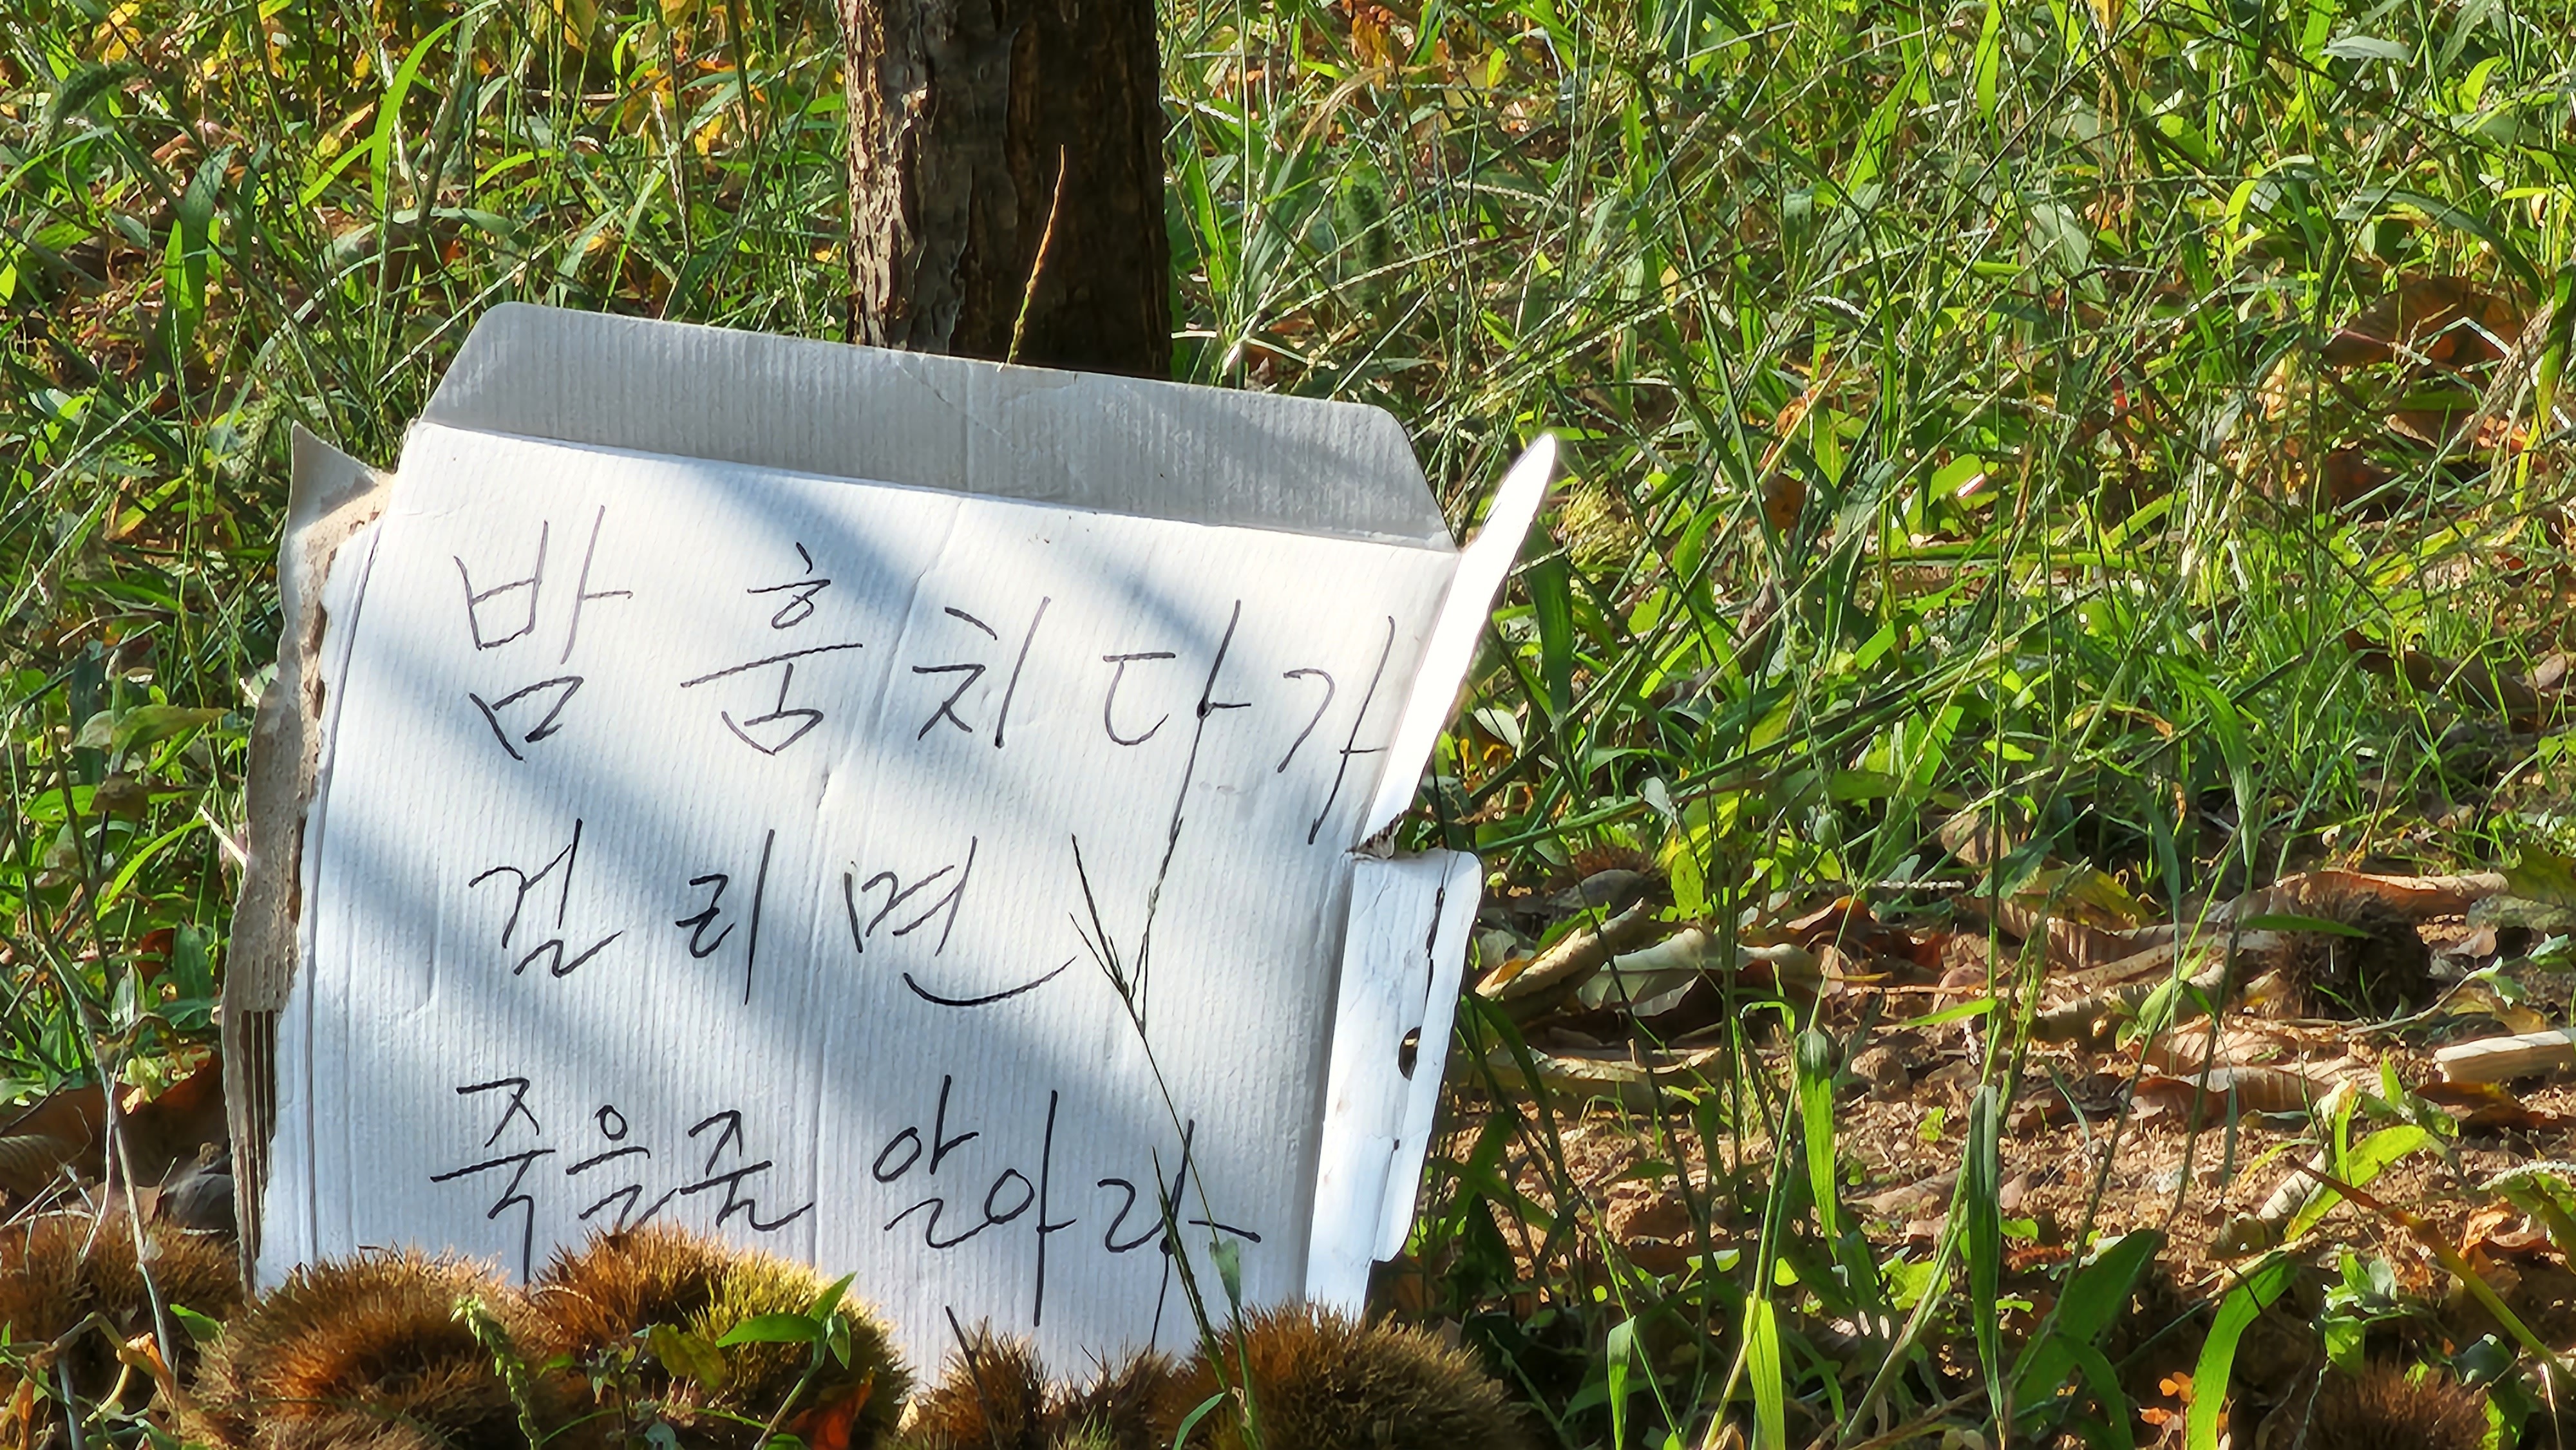 밤 훔치다가
걸리면
죽을줄 알아라